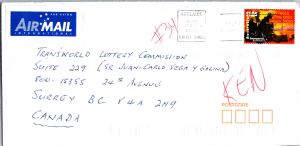 PAR AVION
AIR MAIL
INTERNATIONAL
#34
ADELAIDE
TRANSWORLD LOTTERY COMMISSION
SUITE 229 (SR JUAN-CARLO VEGA Y GALINA)
15355 24TH AVENUE
SURREY BC V4A 2H9
CANADA
KEN
POSTCODE